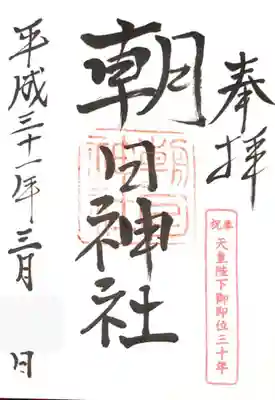 奉拝
奉祝 天皇陛下御即位三十年
朝日神社
平成三十一年三月 日